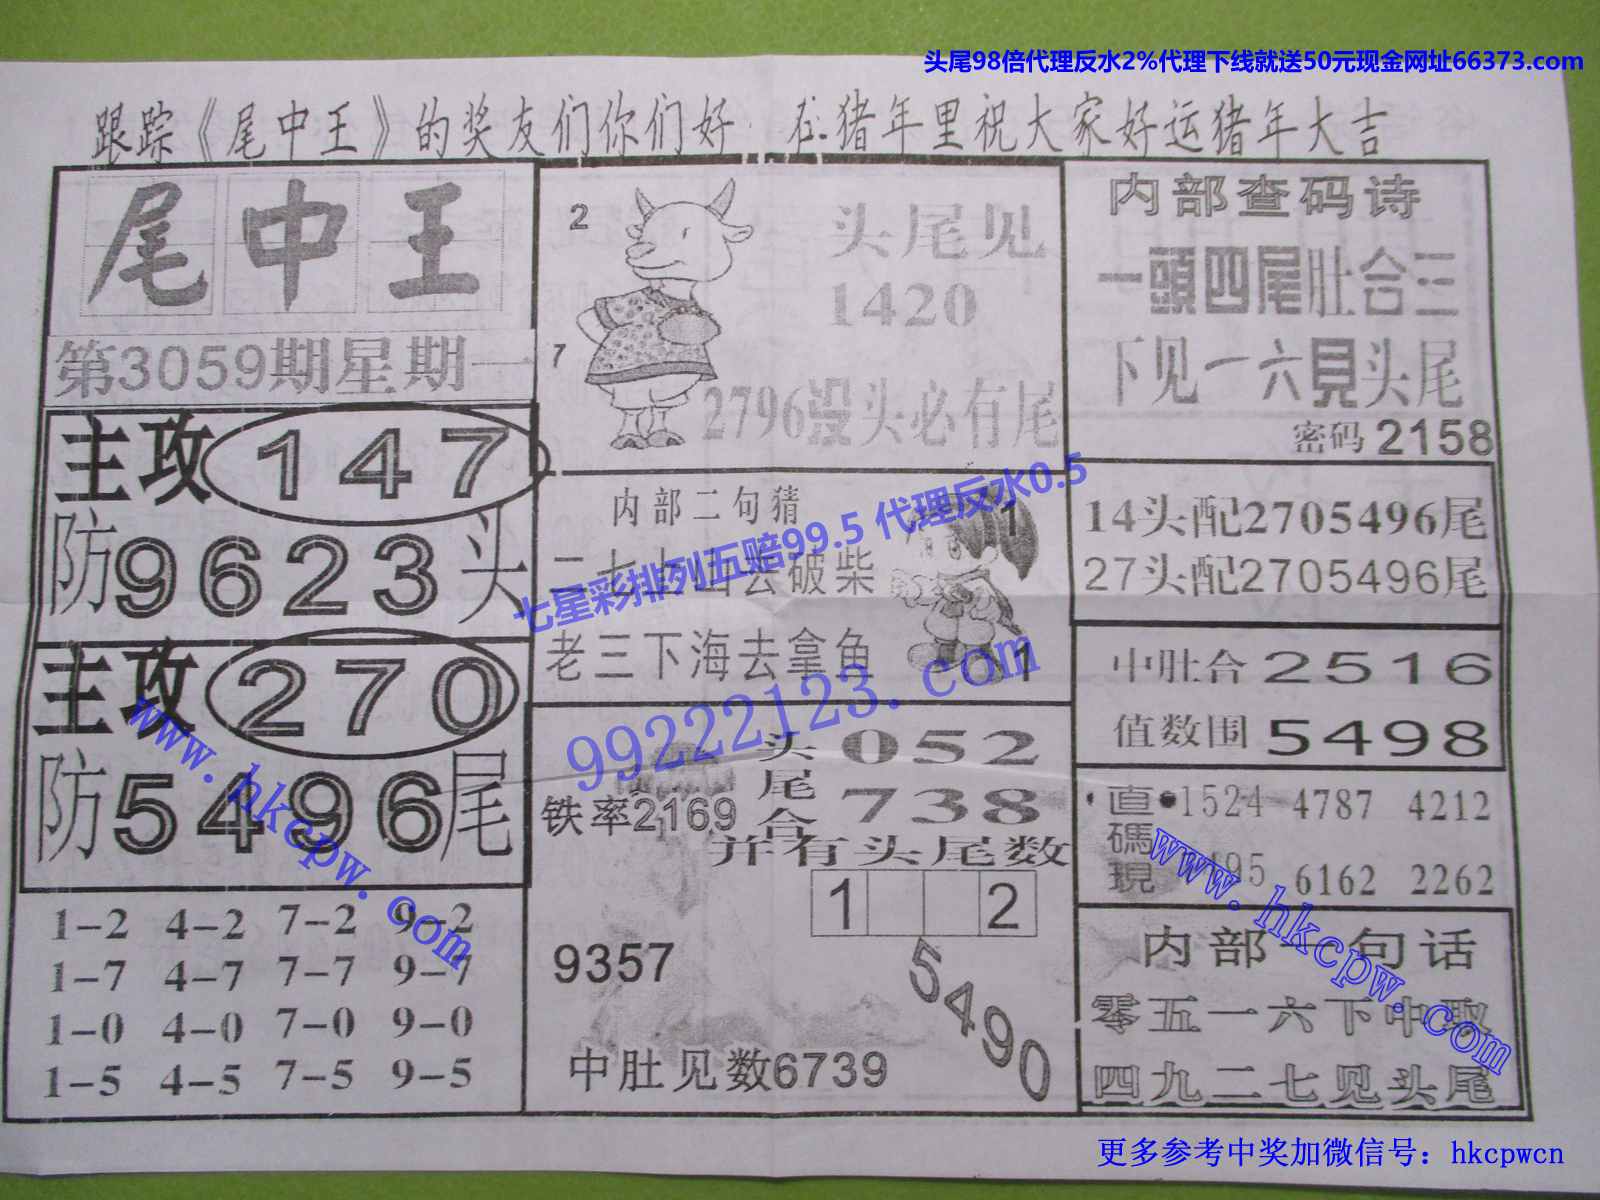 头尾98倍代理反水2%代理下线就送50元现金网址66373.com
跟踪《尾中王》的奖友们你们好 在猪年里祝大家好运猪年大吉
尾中王
第3059期星期一
主攻147
防9623头
主攻270
防5496尾
1-2 4-2 7-2 9-2
1-7 4-7 7-7 9-7
1-0 4-0 7-0 9-0
1-5 4-5 7-5 9-5
2
7
头尾见
1420
2796没头必有尾
内部二句猜
二七上山去破柴
老三下海去拿鱼
1
1
头尾合
052
738
铁率2169
并有头尾数
1 2
9357
5490
中肚见数6739
内部查码诗
一頭四尾肚合三
下见一六見头尾
密码2158
14头配2705496尾
27头配2705496尾
中肚合2516
值数围5498
直碼現
1524 4787 4212
6162 2262
内部一句话
零五一六下中取
四九二七见头尾
七星彩排列五赔99.5 代理反水0.5
99222123.com
www.hkcpw.com
www.hkcpw.com
更多参考中奖加微信号：hkcpwcn